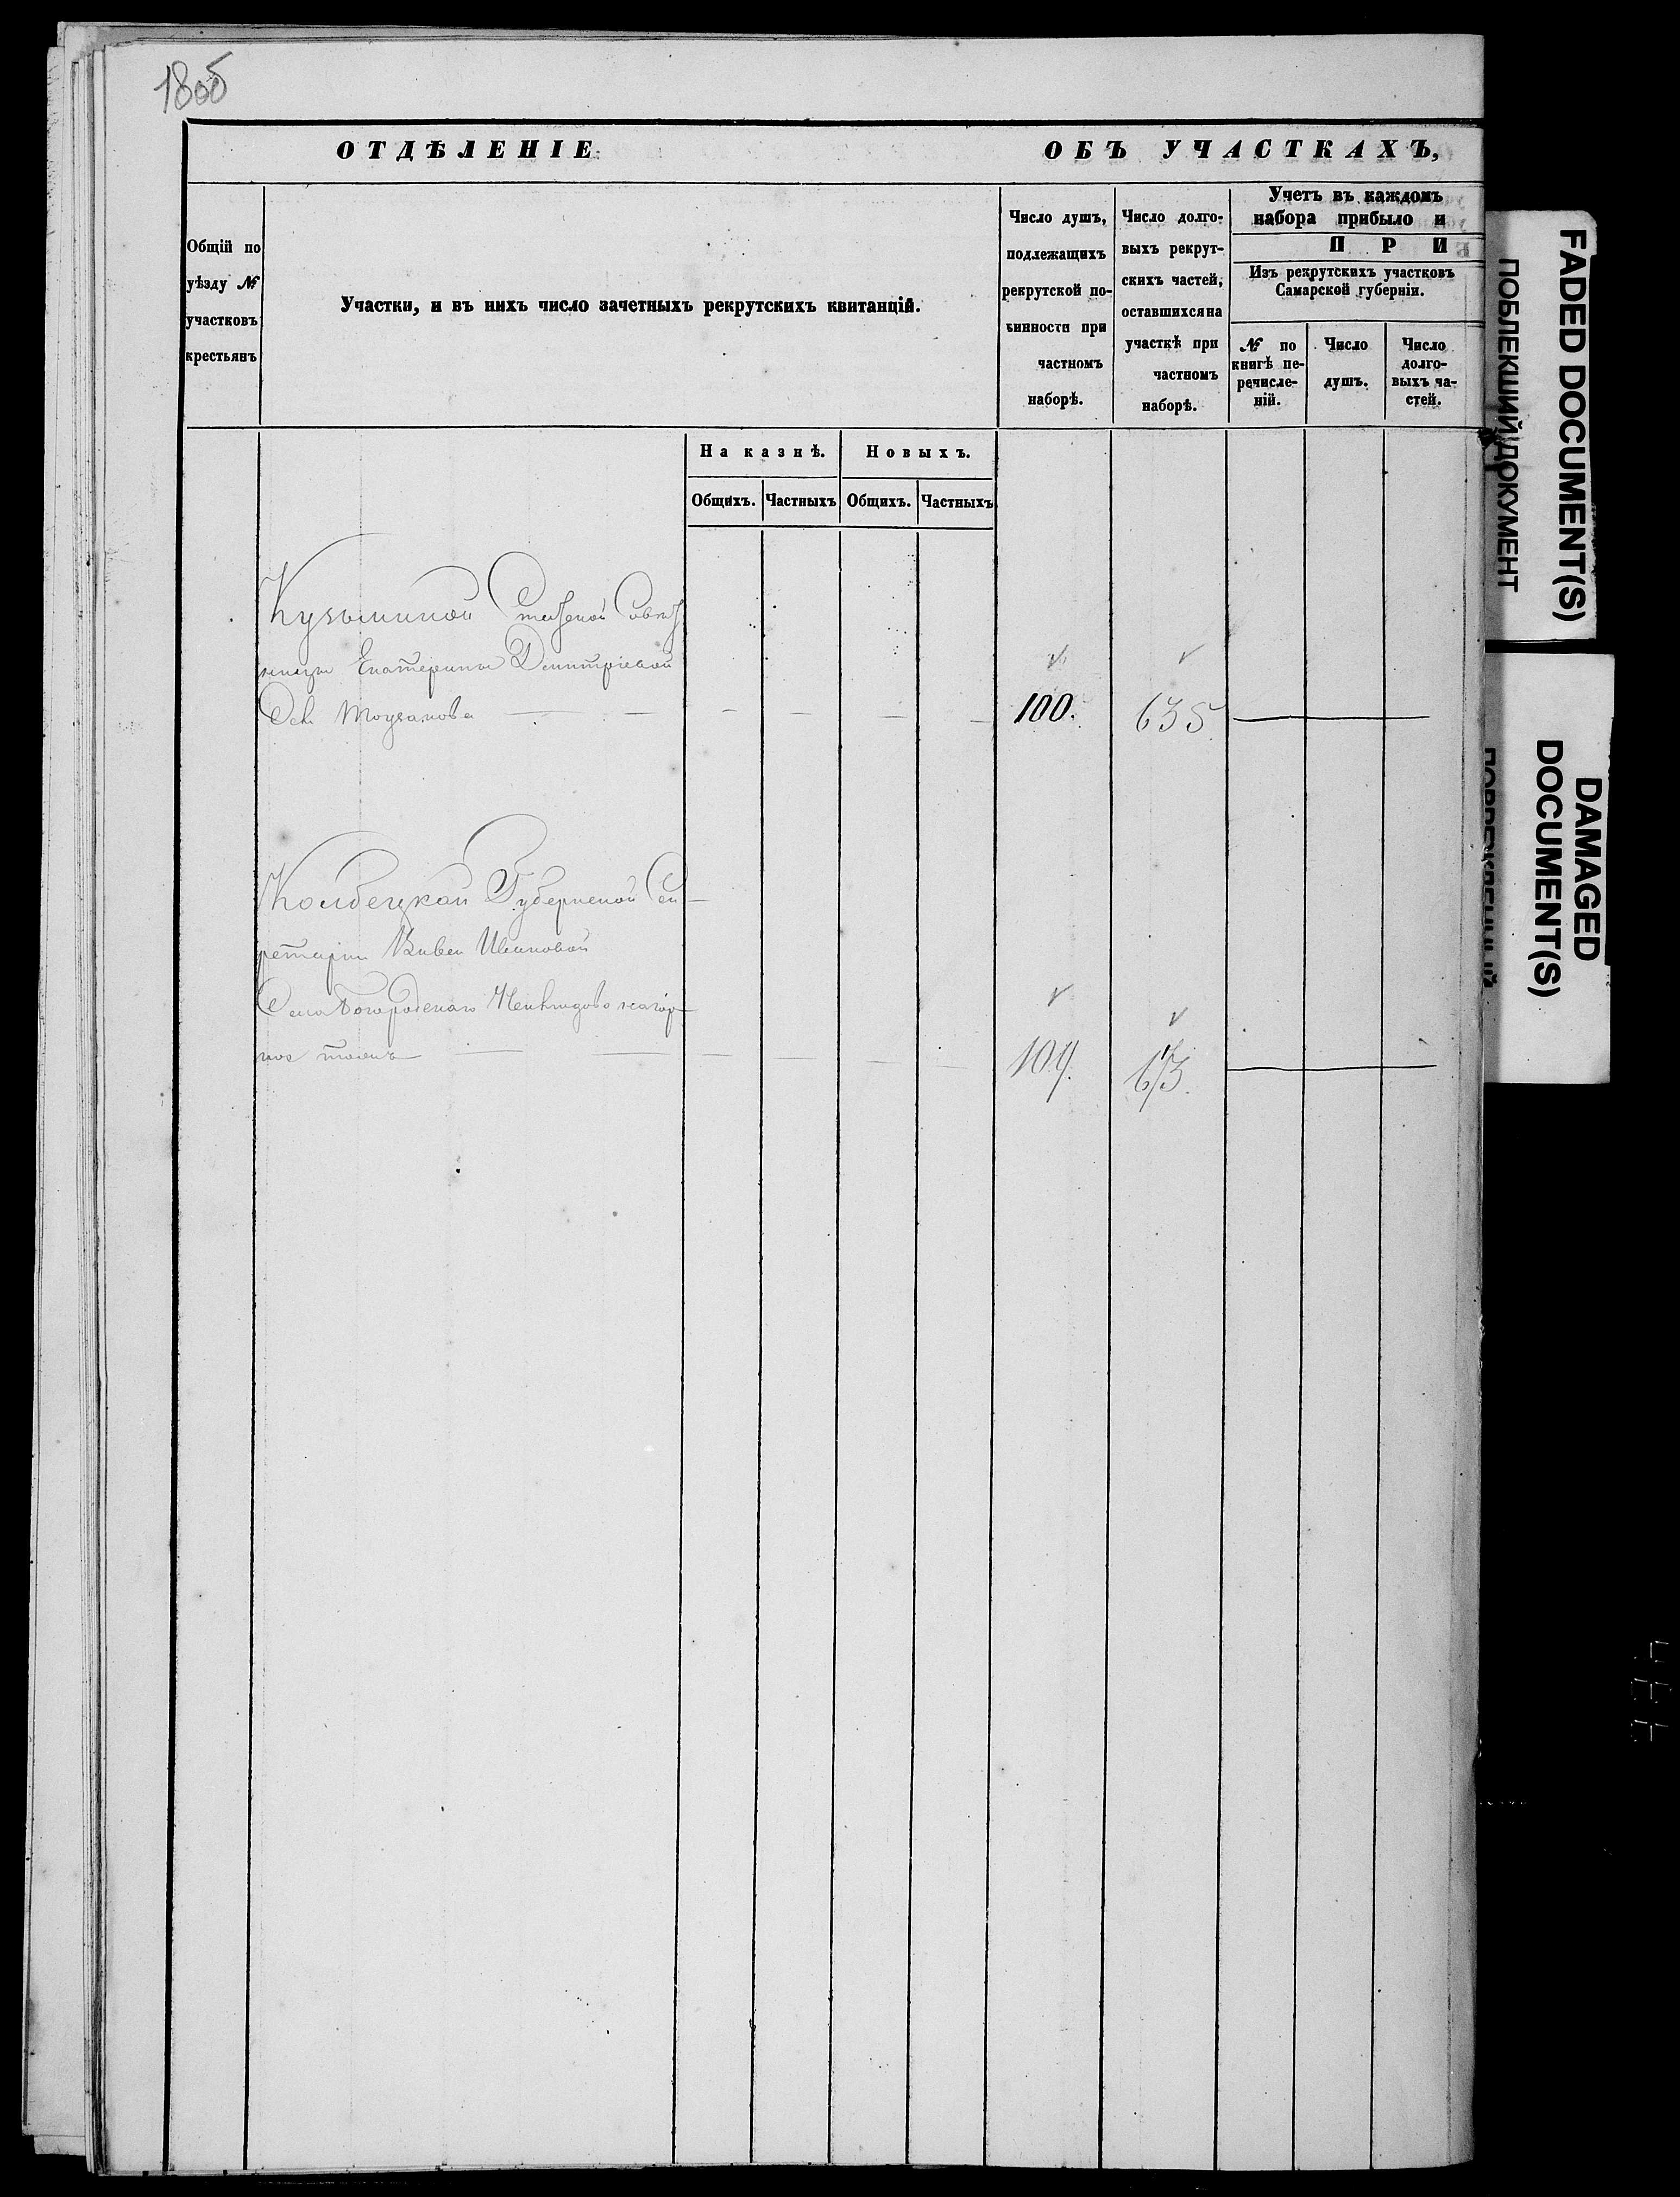 18об
ОТДѢЛЕНІЕ ОБЪ УЧАСТКАХЪ,
Общій по
уѣзду №
участковъ
крестьянъ
Участки, и въ нихъ число зачетныхъ рекрутскихъ квитанцій.
Число душъ,
подлежащихъ
рекрутской по-
винности при
частномъ
наборѣ.
Число долго-
выхъ рекрут-
скихъ частей,
оставшихся на
участкѣ при
частномъ
наборѣ.
Учетъ въ каждомъ
набора прибыло и
П Р И
Изъ рекрутскихъ участковъ
Самарской губерніи.
№ по
книгѣ пе-
речисле-
ній.
Число
душъ.
Число
долго-
выхъ ча-
стей.
На казнѣ. Новыхъ.
Общихъ. Частныхъ Общихъ. Частныхъ
Кузьминой Статской Совѣт
ницы Екатерины Дмитріевой
100. 635.
Губернской Сек
ретарши Ивановой
Села Богородскаго
тожъ 104. 673.
FADED DOCUMENT(S)
ПОБЛЕКШИЙ ДОКУМЕНТ
DAMAGED
DOCUMENT(S)